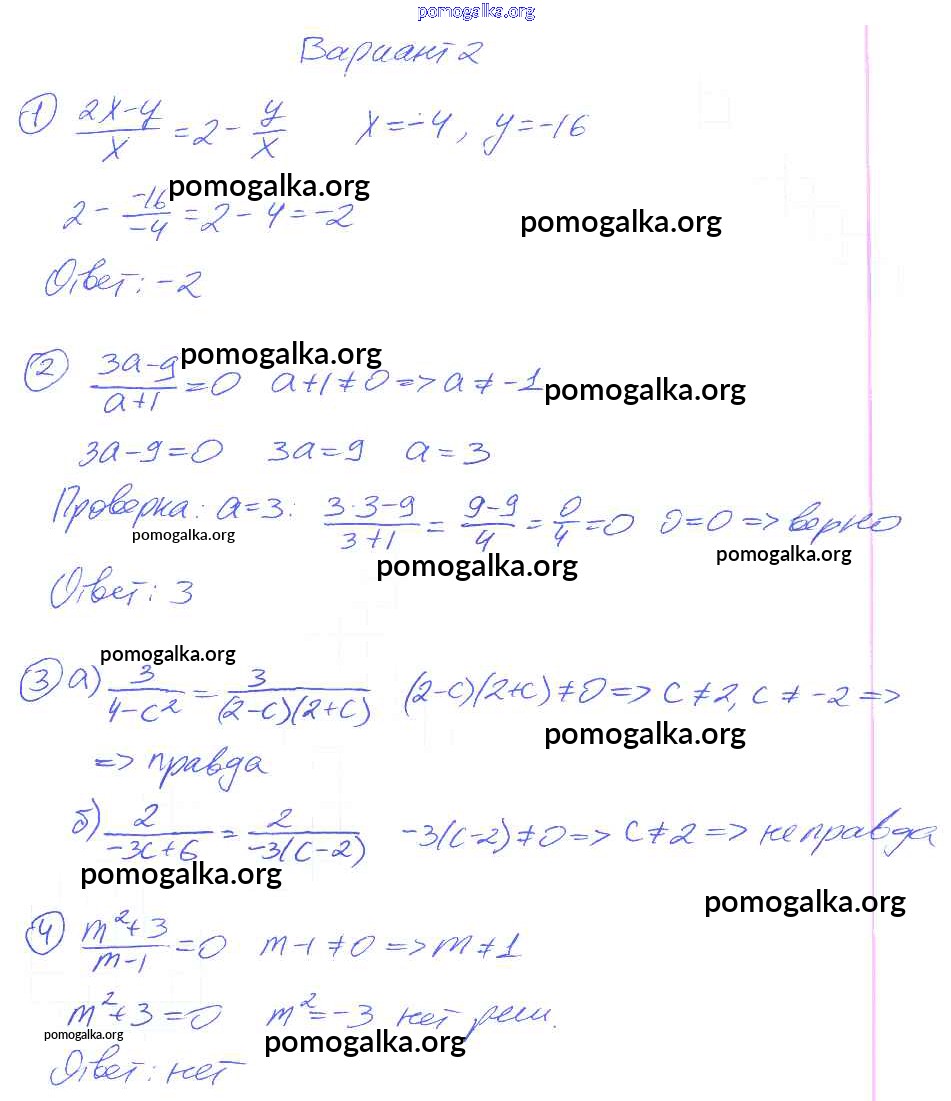 pomogalka.org
Вариант 2
① (2x-y)/x = 2 - y/x   x=-4, y=-16
pomogalka.org
2 - (-16)/(-4) = 2 - 4 = -2
pomogalka.org
Ответ: -2
pomogalka.org
② (3a-9)/(a+1) = 0   a+1≠0 => a≠-1
pomogalka.org
3a-9=0   3a=9   a=3
Проверка: a=3: (3·3-9)/(3+1) = (9-9)/4 = 0/4 = 0   0=0 => верно
pomogalka.org
pomogalka.org
pomogalka.org
Ответ: 3
pomogalka.org
③ а) 3/(4-c²) = 3/((2-c)(2+c))   (2-c)(2+c)≠0 => c≠2, c≠-2 =>
pomogalka.org
=> правда
б) 2/(-3c+6) = 2/(-3(c-2))   -3(c-2)≠0 => c≠2 => не правда
pomogalka.org
pomogalka.org
④ (m²+3)/(m-1) = 0   m-1≠0 => m≠1
m²+3=0   m²=-3 нет реш.
pomogalka.org
pomogalka.org
Ответ: нет